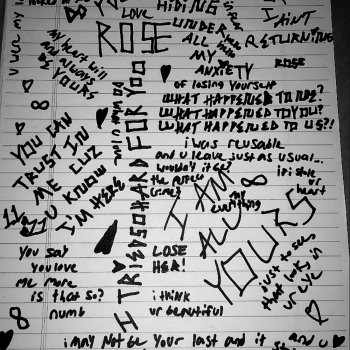 HIDING
LOVE
ROSE
UNDER
ALL
MY
ANXIETY
I AIN'T
RETURNING
ROSE
my heart will
and always
be YOURS
of losing yourself
WHAT HAPPENED TO ME?
WHAT HAPPENED TO YOU?
WHAT HAPPENED TO US?!
i was reusable
and u leave just as usual...
wouldn't it be?
crime?
YOU CAN
TRUST IN
ME CUZ
U KNOW
I'M HERE
I TRIED SO HARD FOR YOU
I AM
ALL
YOURS
my
everything
ur
heart
11:11
you say
you love
me more
is that so?
numb
LOSE
HER!
i think
ur beautiful
just to see
that look in
ur eye
i may not be your last and it